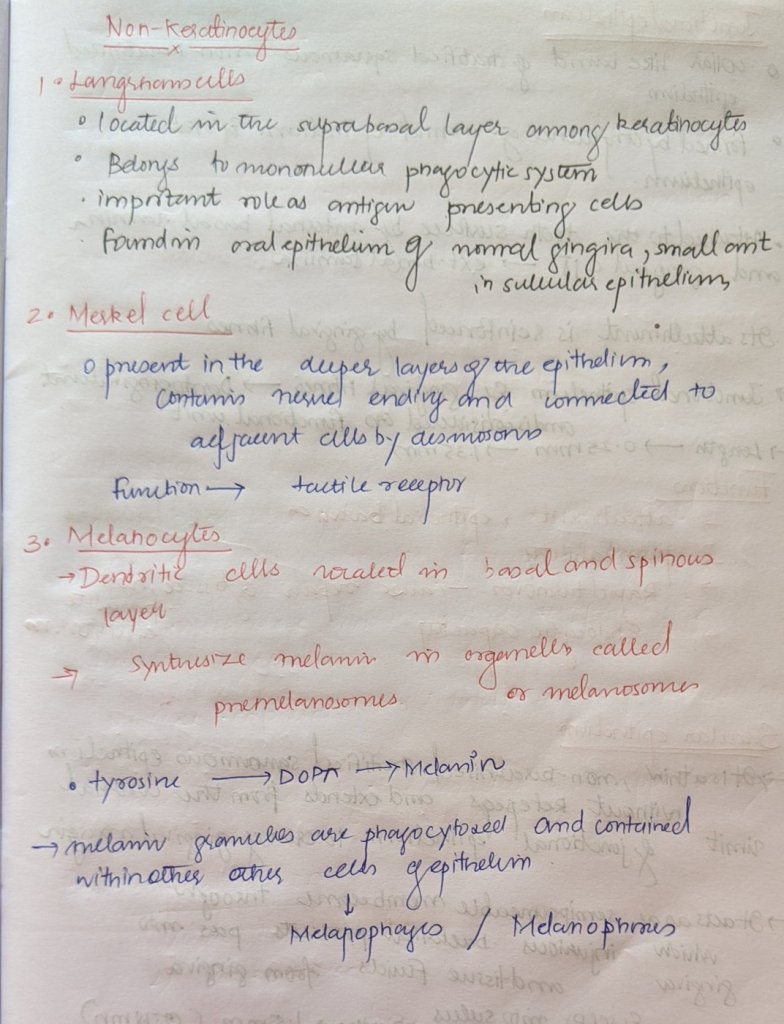 Non-Keratinocytes
1. Langerhans cells
• located in the suprabasal layer among keratinocytes
• Belongs to mononuclear phagocytic system
• important role as antigen presenting cells
• found in oral epithelium of normal gingiva, small amt
in sulcular epithelium
2. Merkel cell
o present in the deeper layers of the epithelium,
contains nerve ending and connected to
adjacent cells by desmosoms
function → tactile receptor
3. Melanocytes
→ Dendritic cells located in basal and spinous
layer
→ synthesize melanin in organelles called
premelanosomes or melanosomes
• tyrosine → DOPA → Melanin
→ melanin granules are phagocytosed and contained
within other other cells of epithelium
↓
Melanophages / Melanophores